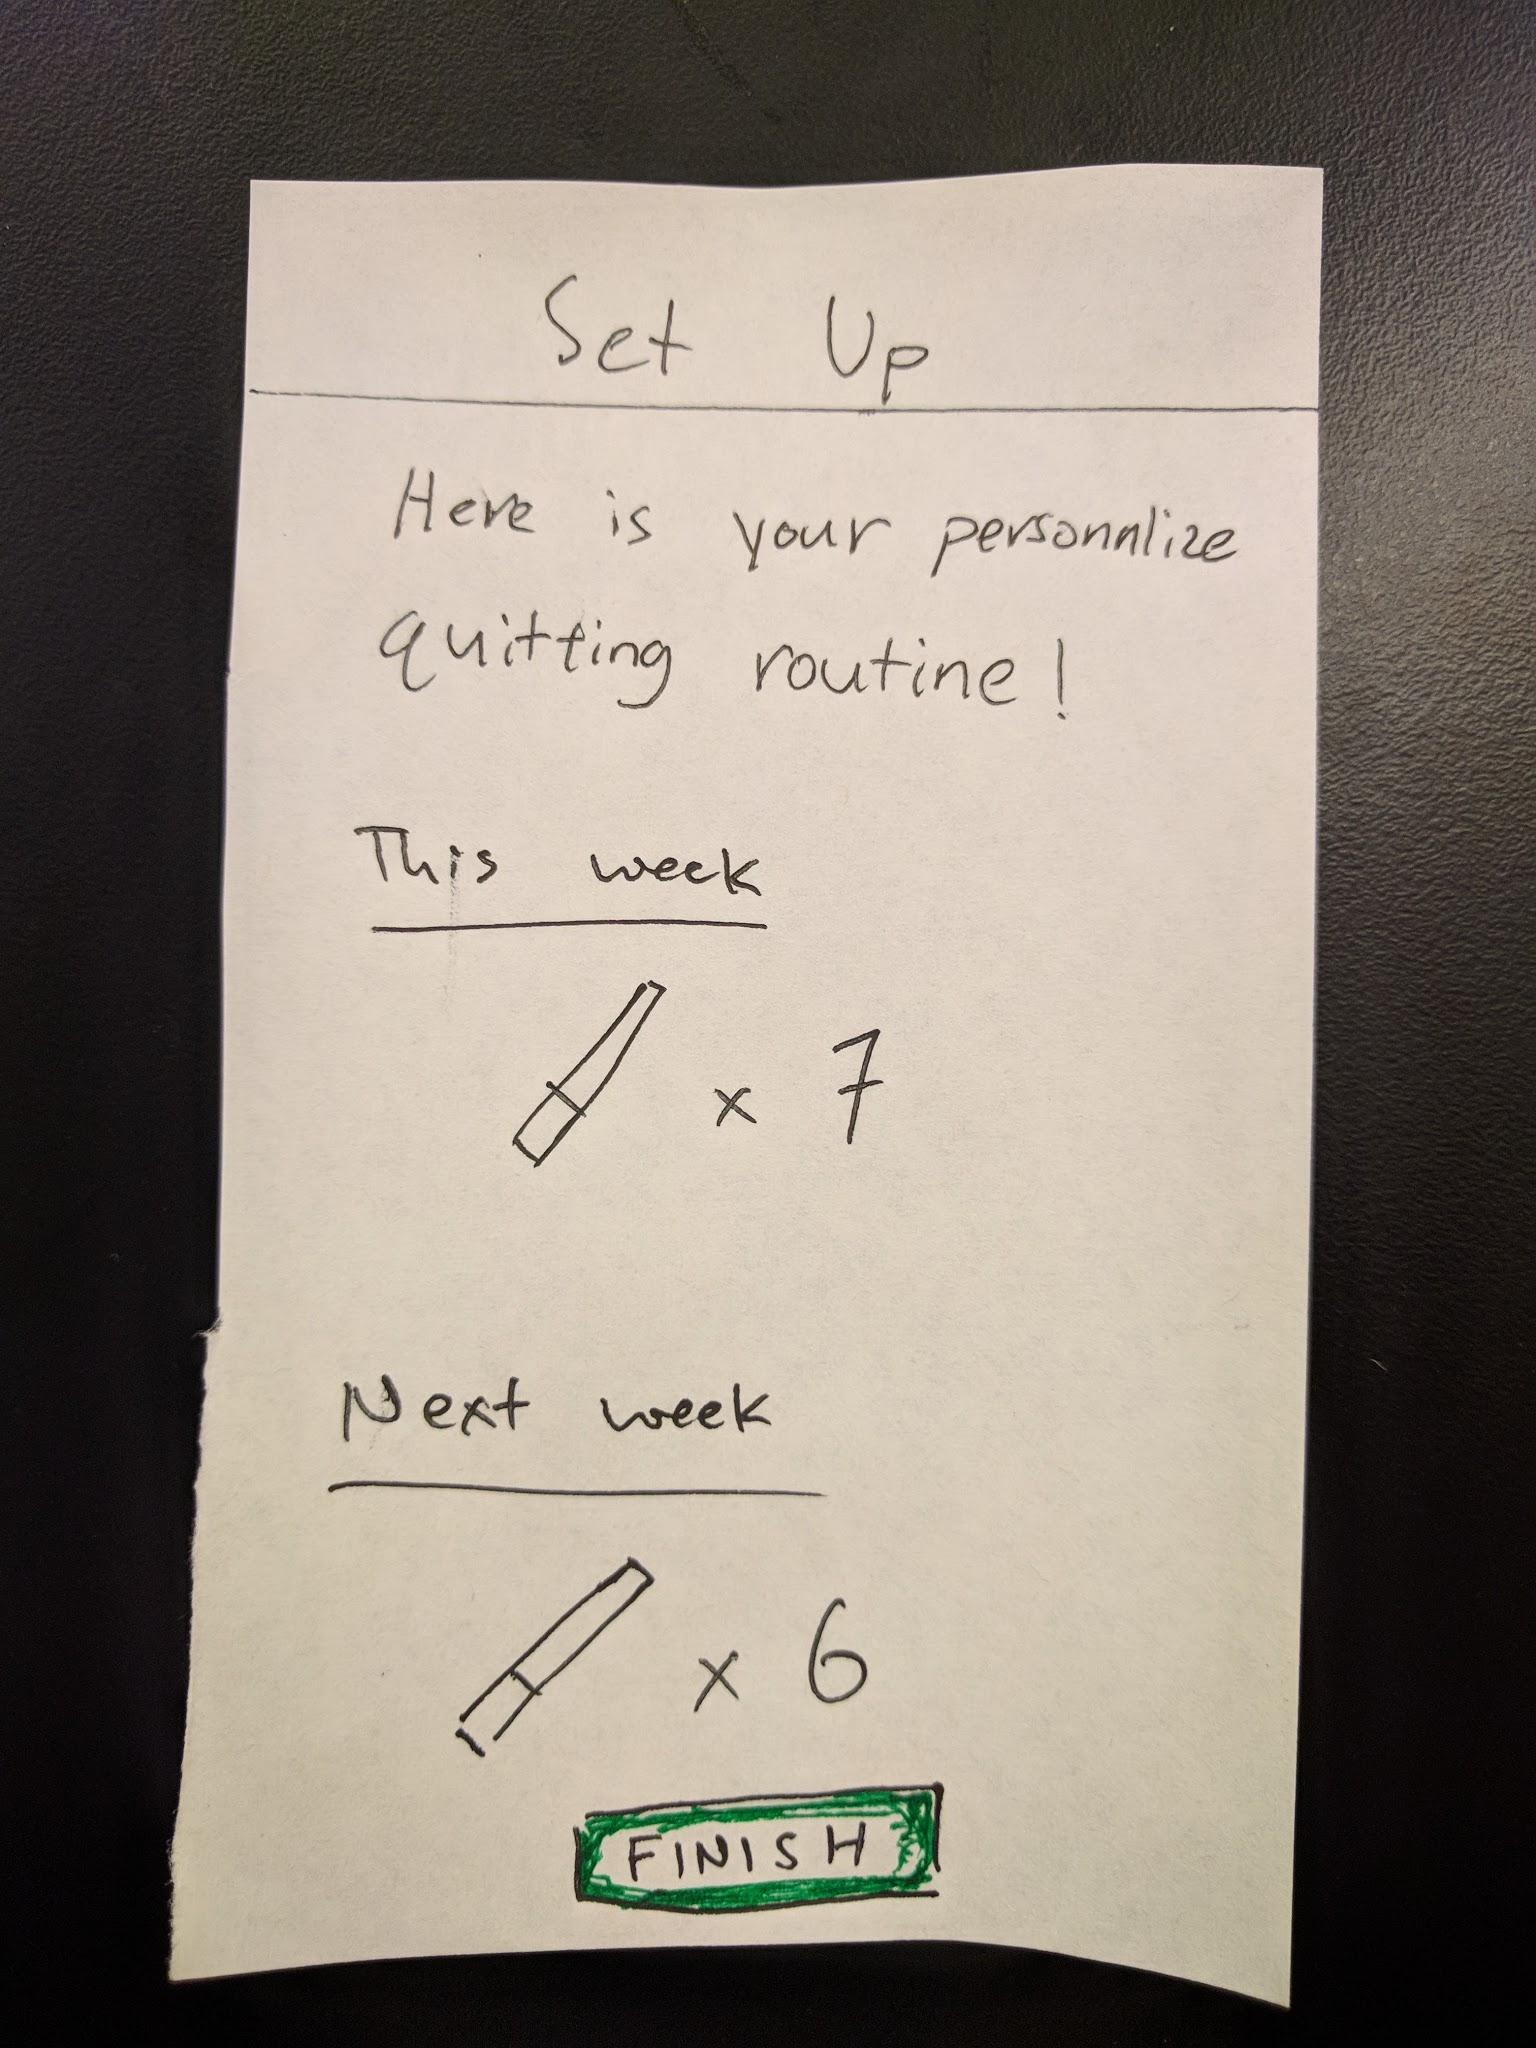 Set Up
Here is your personnlize
quitting routine!
This week
x 7
Next week
x 6
FINISH